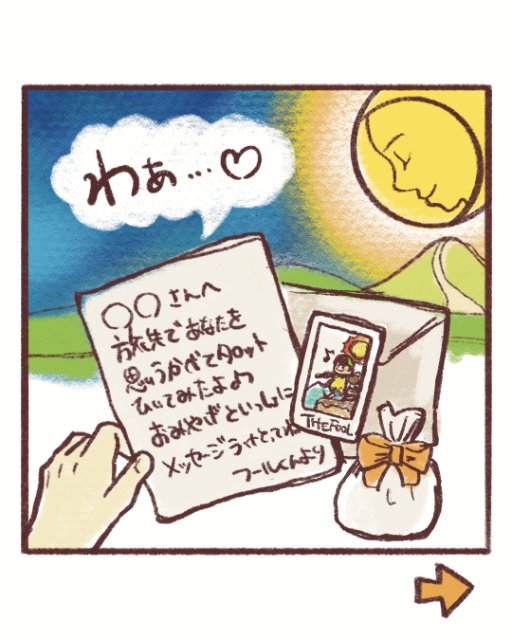 わぁ…♡
○○さんへ
旅先であなたを
思いうかべてタロット
ひいてみたよ♪
おみやげといっしょに
メッセージうけとってね
フールくんより
THE FOOL